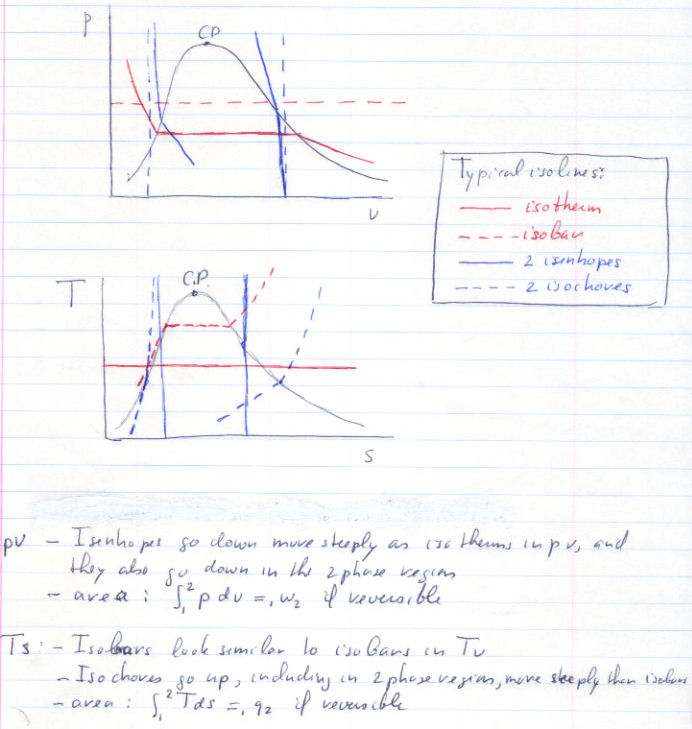 P
CP
v
Typical isolines:
isotherm
isobar
2 isenhopes
2 isochores
T
C.P.
s
pv - Isenhopes go down more steeply as isotherms in pv, and
they also go down in the 2 phase region
- area : ∫₁² p dv = ₁w₂ if reversible
Ts : - Isobars look similar to isobars in Tv
- Isochores go up, including in 2 phase region, more steeply than isobars
- area : ∫₁² T ds = ₁q₂ if reversible